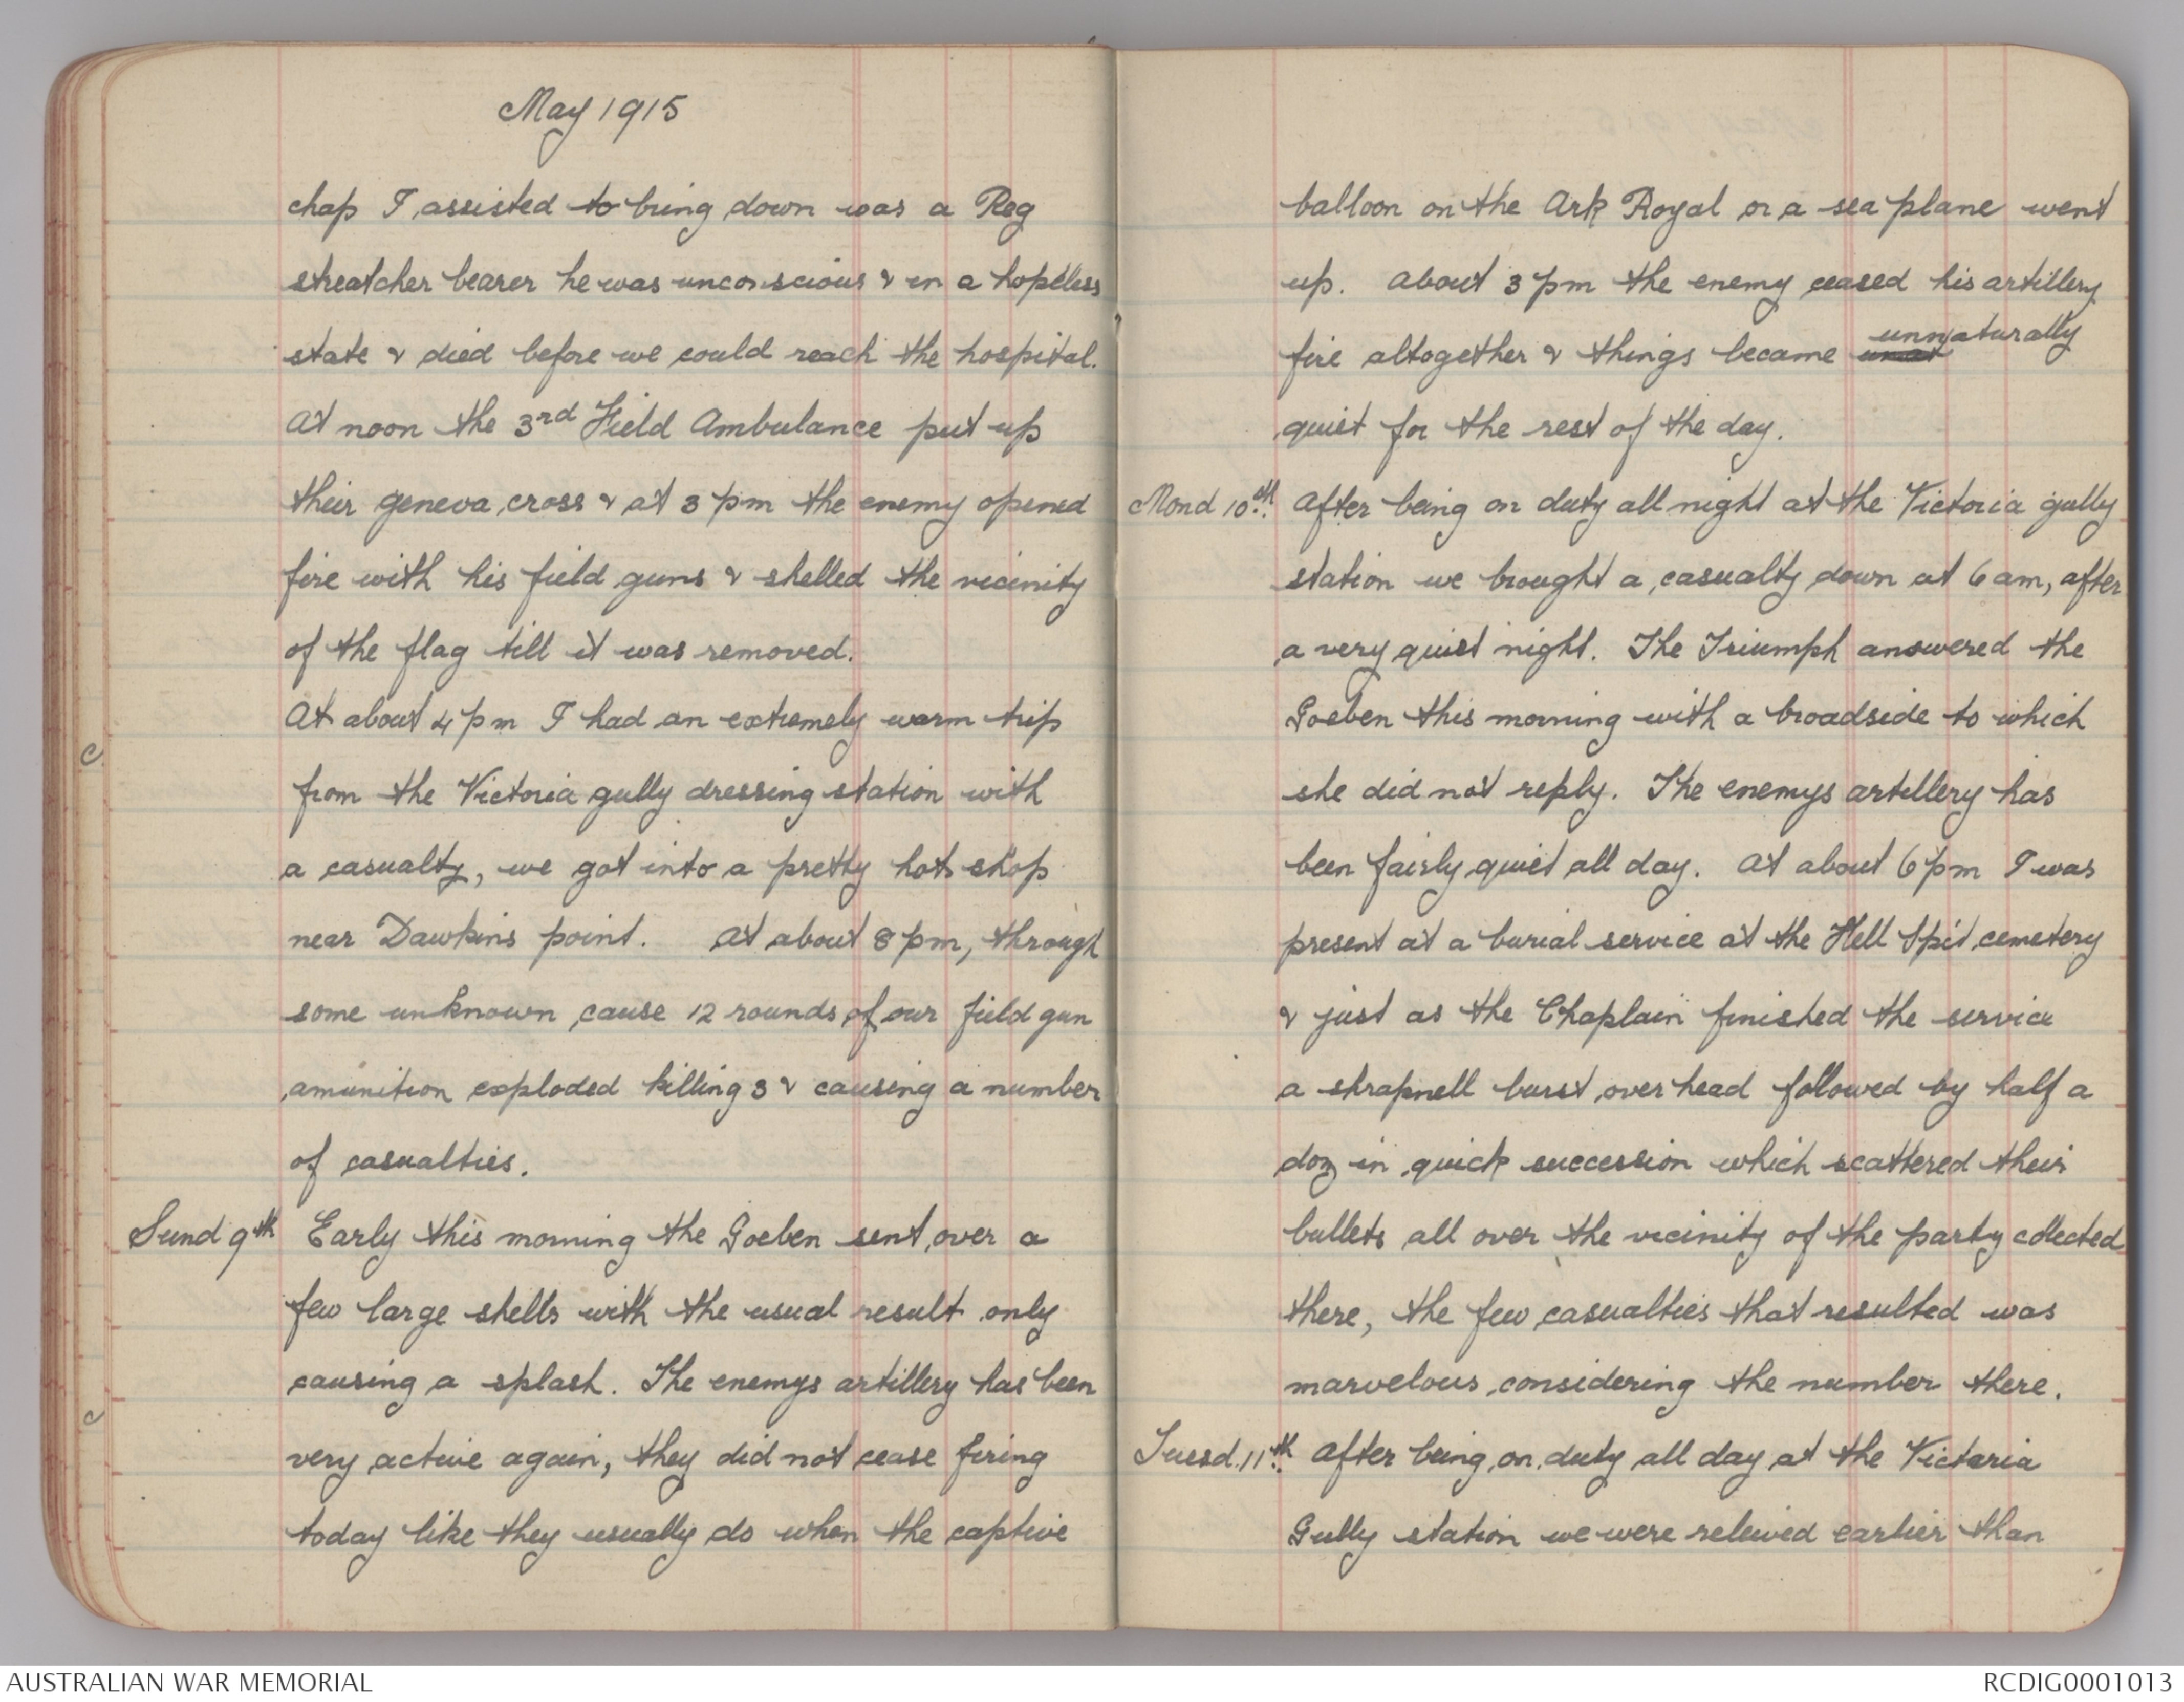 May 1915
chap I assisted to bring down was a Reg
streatcher bearer he was unconscious & in a hopeless
state & died before we could reach the hospital.
At noon the 3rd Field Ambulance put up
their geneva cross & at 3 pm the enemy opened
fire with his field guns & shelled the vicinity
of the flag till it was removed.
At about 4 pm I had an extremely warm trip
from the Victoria gully dressing station with
a casualty, we got into a pretty hot shop
near Dawkins point. At about 8 pm, through
some unknown cause 12 rounds of our field gun
amunition exploded killing 3 & causing a number
of casualties.
Sund 9th Early this morning the Goeben sent over a
few large shells with the usual result only
causing a splash. The enemys artillery has been
very active again, they did not cease firing
today like they usually do when the captive
balloon on the Ark Royal or a sea plane went
up. About 3 pm the enemy ceased his artillery
fire altogether & things became unnaturally
quiet for the rest of the day.
Mond 10th After being on duty all night at the Victoria gully
station we brought a casualty down at 6 am, after
a very quiet night. The Triumph answered the
Goeben this morning with a broadside to which
she did not reply. The enemys artillery has
been fairly quiet all day. At about 6 pm I was
present at a burial service at the Hell Spit cemetery
& just as the Chaplain finished the service
a shrapnell burst over head followed by half a
doz in quick succession which scattered their
bullets all over the vicinity of the party collected
there, the few casualties that resulted was
marvelous considering the number there.
Tuesd. 11th After being on duty all day at the Victoria
Gully station we were releived earlier than
C
C
AUSTRALIAN WAR MEMORIAL
RCDIG0001013